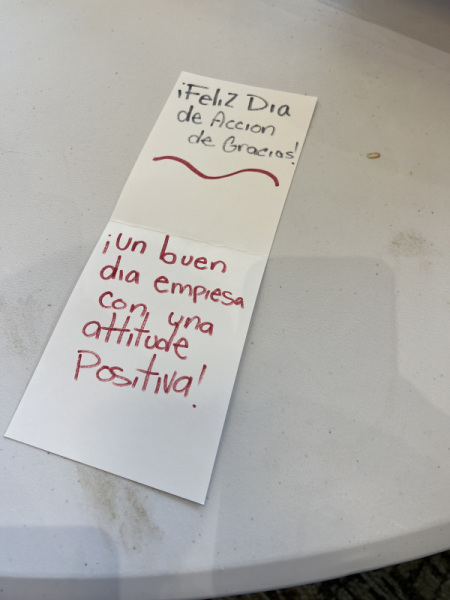 ¡Feliz Dia
de Accion
de Gracias!
¡un buen
dia empiesa
con una
attitude
Positiva!